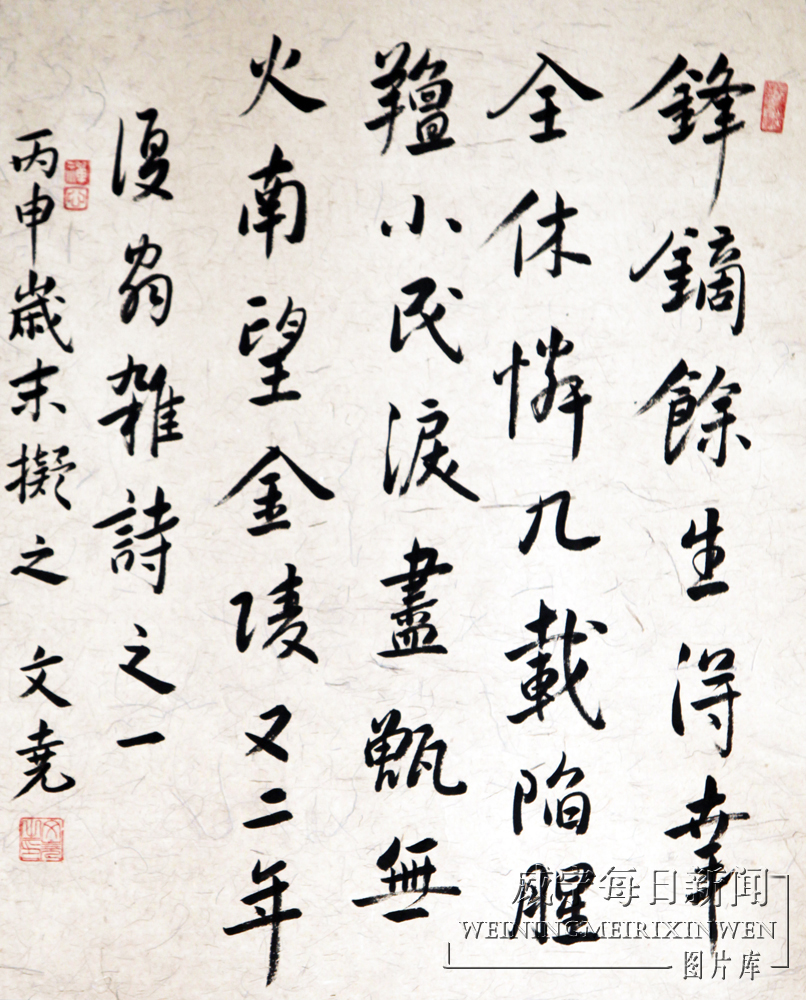 鋒鏑餘生得幸
全休憐九載陷腥
羶小民淚盡甑無
火南望金陵又二年
復翁雜詩之一
丙申歲末擬之 文堯
威宁每日新闻
WEININGMEIRIXINWEN
图片库